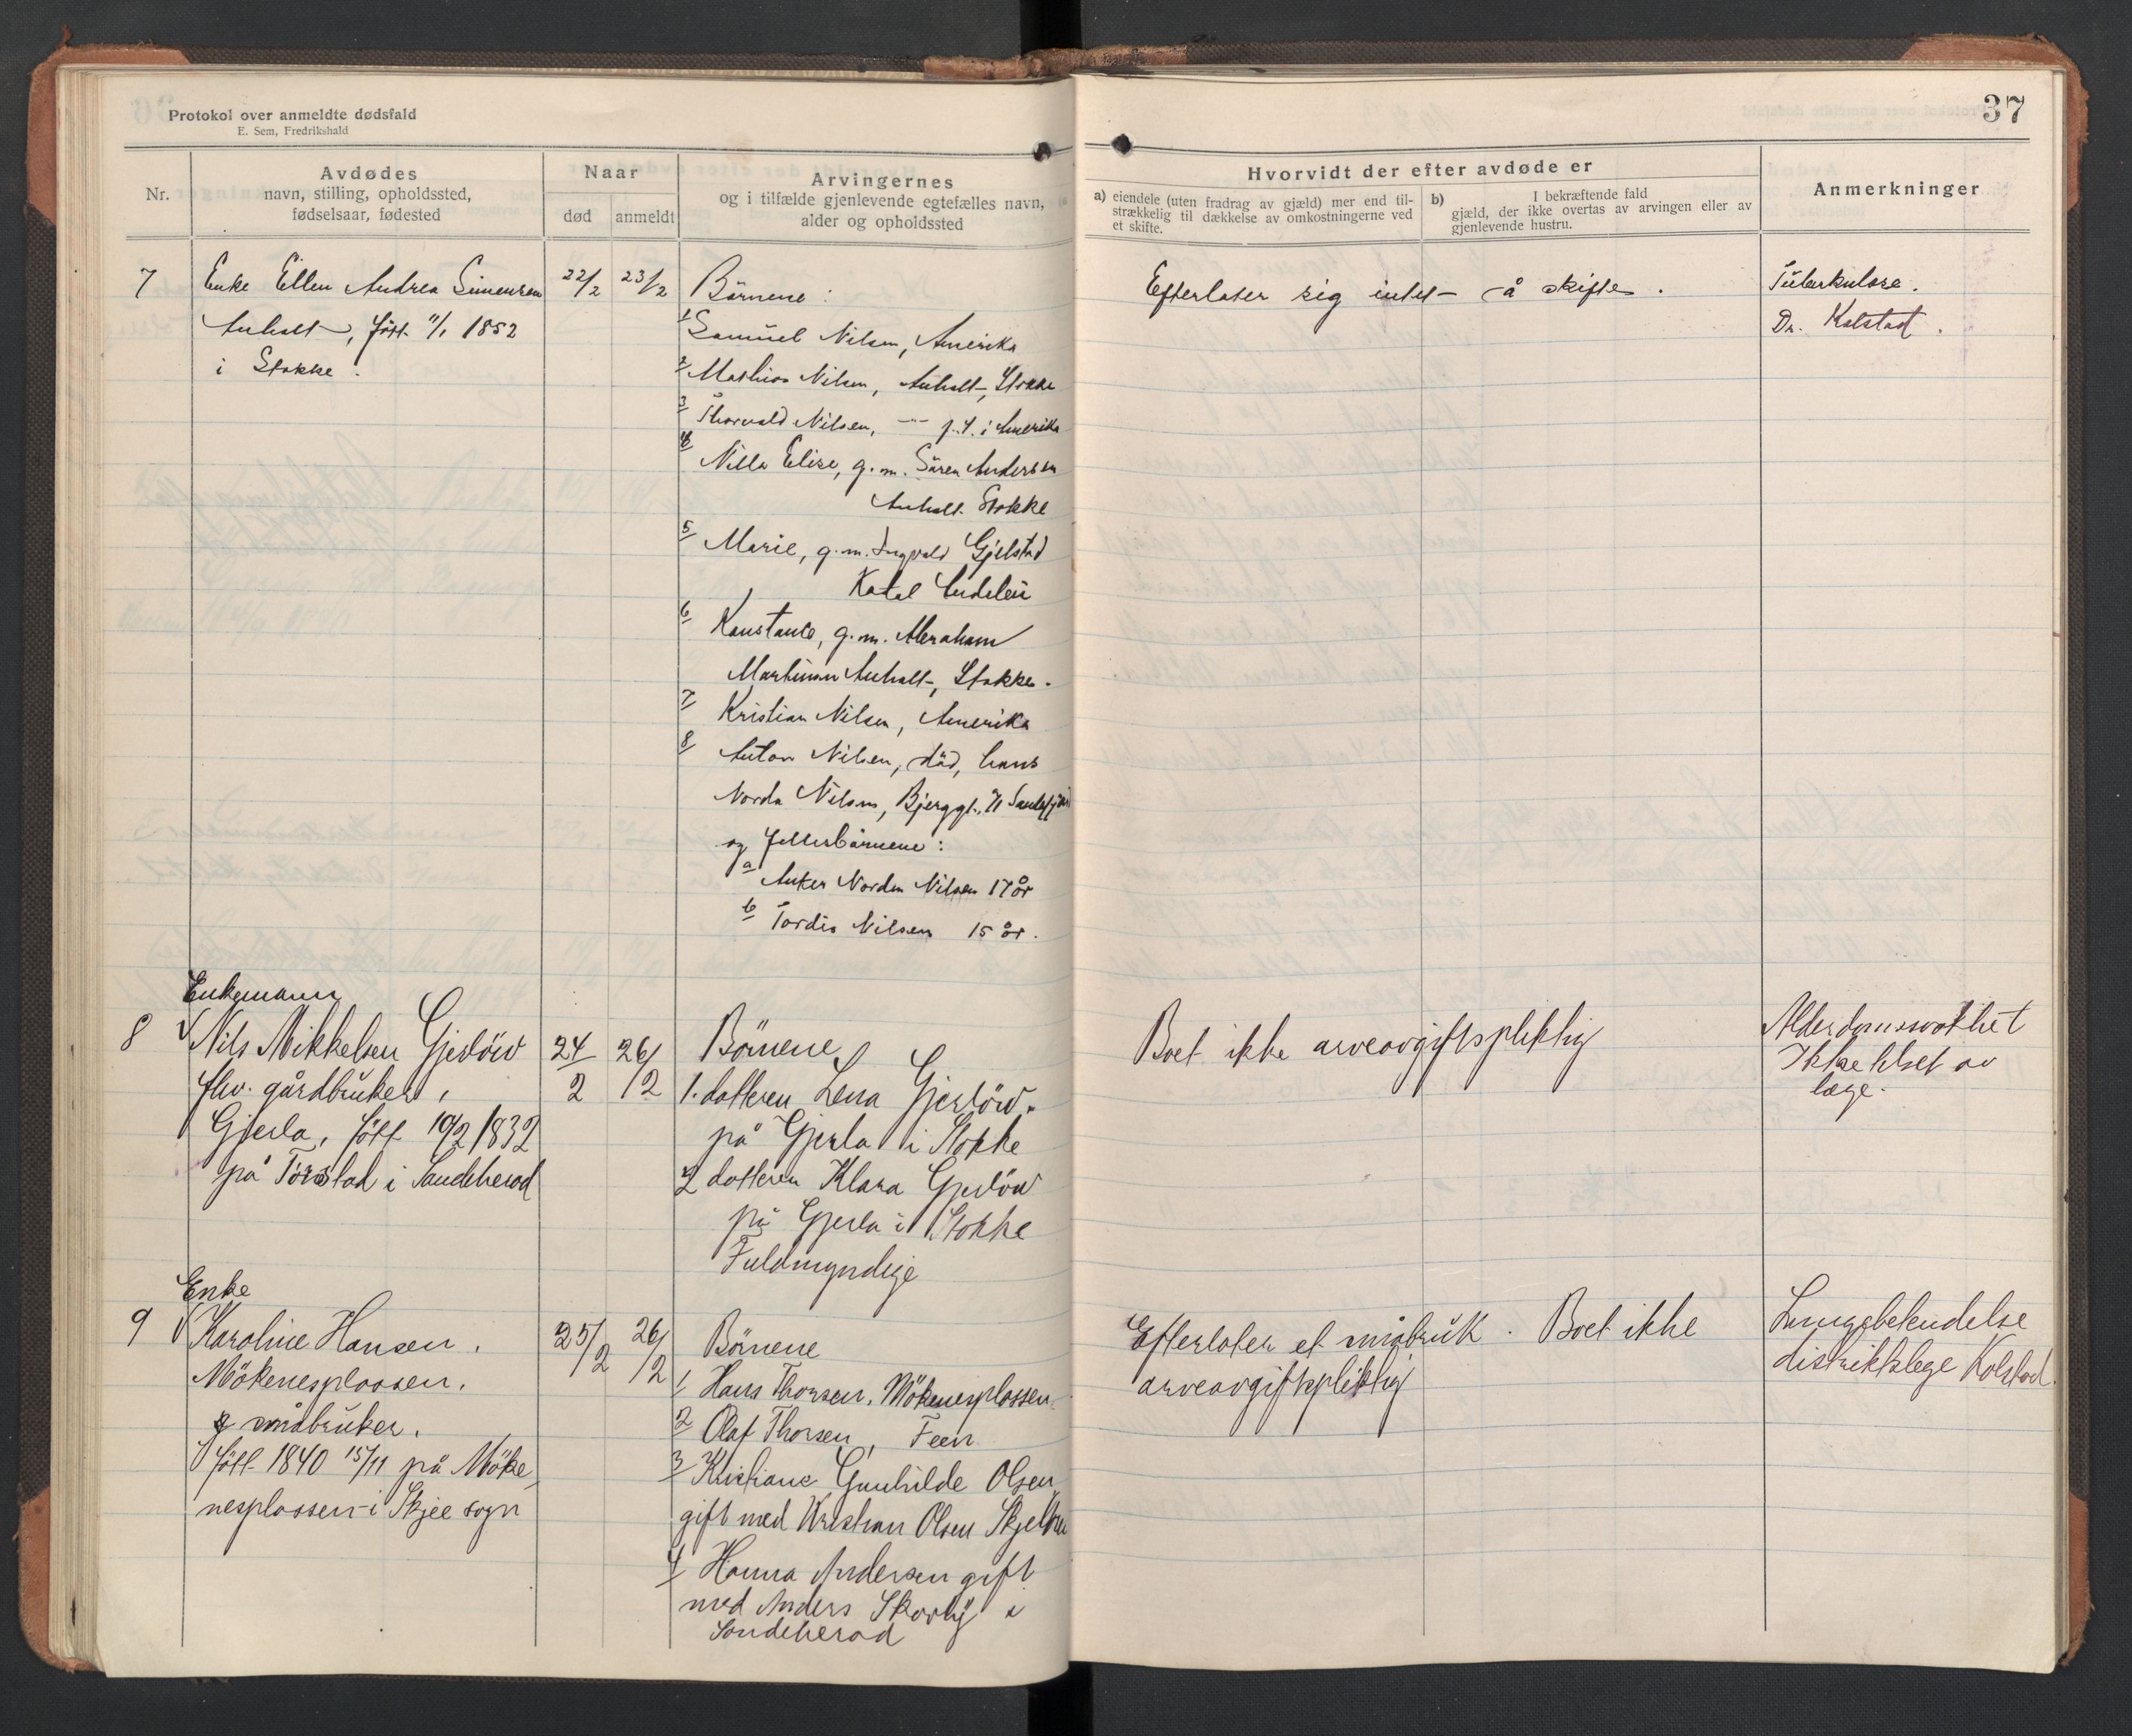 Protokol over anmeldte dødsfald
E. Sem, Fredrikshald
37
Nr.
Avdødes
navn, stilling, opholdssted,
fødselsaar, fødested
Naar
død
anmeldt
Arvingernes
og i tilfælde gjenlevende egtefælles navn,
alder og opholdssted
Hvorvidt der efter avdøde er
a) eiendele (uten fradrag av gjæld) mer end til-
strækkelig til dækkelse av omkostningerne ved
et skifte.
b) I bekræftende fald
gjæld, der ikke overtas av arvingen eller av
gjenlevende hustru.
Anmerkninger
7
Enke Ellen Andrea Simensen
Anholt, född 11/1 1852
i Stokke.
22/2
23/2
Börnene:
1 Samuel Nilsen, Amerika
2 Mathias Nilsen, Anholt, Stokke
3 Thorvald Nilsen, —"— p.t. i Amerika
4 Nilla Elise, g.m. Sören Andersen
Anholt Stokke
5 Marie, g.m. Ingvald Gjelstad
Kodal Andebu
6 Konstance, g.m. Abraham
Martinsen Anholt, Stokke.
7 Kristian Nilsen, Amerika
8 Anton Nilsen, död, hans
Norda Nilsen, Bjerggt. 71 Sandefjord
og fellesbörnene:
a Anker Norden Nilsen 17 år
b Tordis Nilsen 15 år.
Efterlater sig intet å skifte.
Tuberkulose.
Dr. Kolstad.
Enkemann
8
Nils Mikkelsen Gjerlöw
fhv. gårdbruker,
Gjerla, född 10/2 1832
på Torstad i Sandeherad
24/2
26/2
Börnene
1. datteren Lena Gjerlöw.
på Gjerla i Stokke
2 datteren Klara Gjerlöw
på Gjerla i Stokke
Fuldmyndige
Boet ikke arveavgiftspliktig
Alderdomssvakhet
Ikke tilset av
læge.
Enke
9
Karoline Hansen.
Mökenesplassen.
småbruker.
född 1840 15/11 på Möke
nesplassen i Skjee sogn
25/2
26/2
Börnene
1 Hans Thorsen. Mökenesplassen
2 Olaf Thorsen, Feen
3 Kristiane Gunhilde Olsen,
gift med Kristian Olsen Skjelbu
4 Hanna Andersen gift
med Anders Skorby i
Sandeherad
Efterlater et småbruk. Boet ikke
arveavgiftspliktig
Lungebetendelse
distriktslege Kolstad.